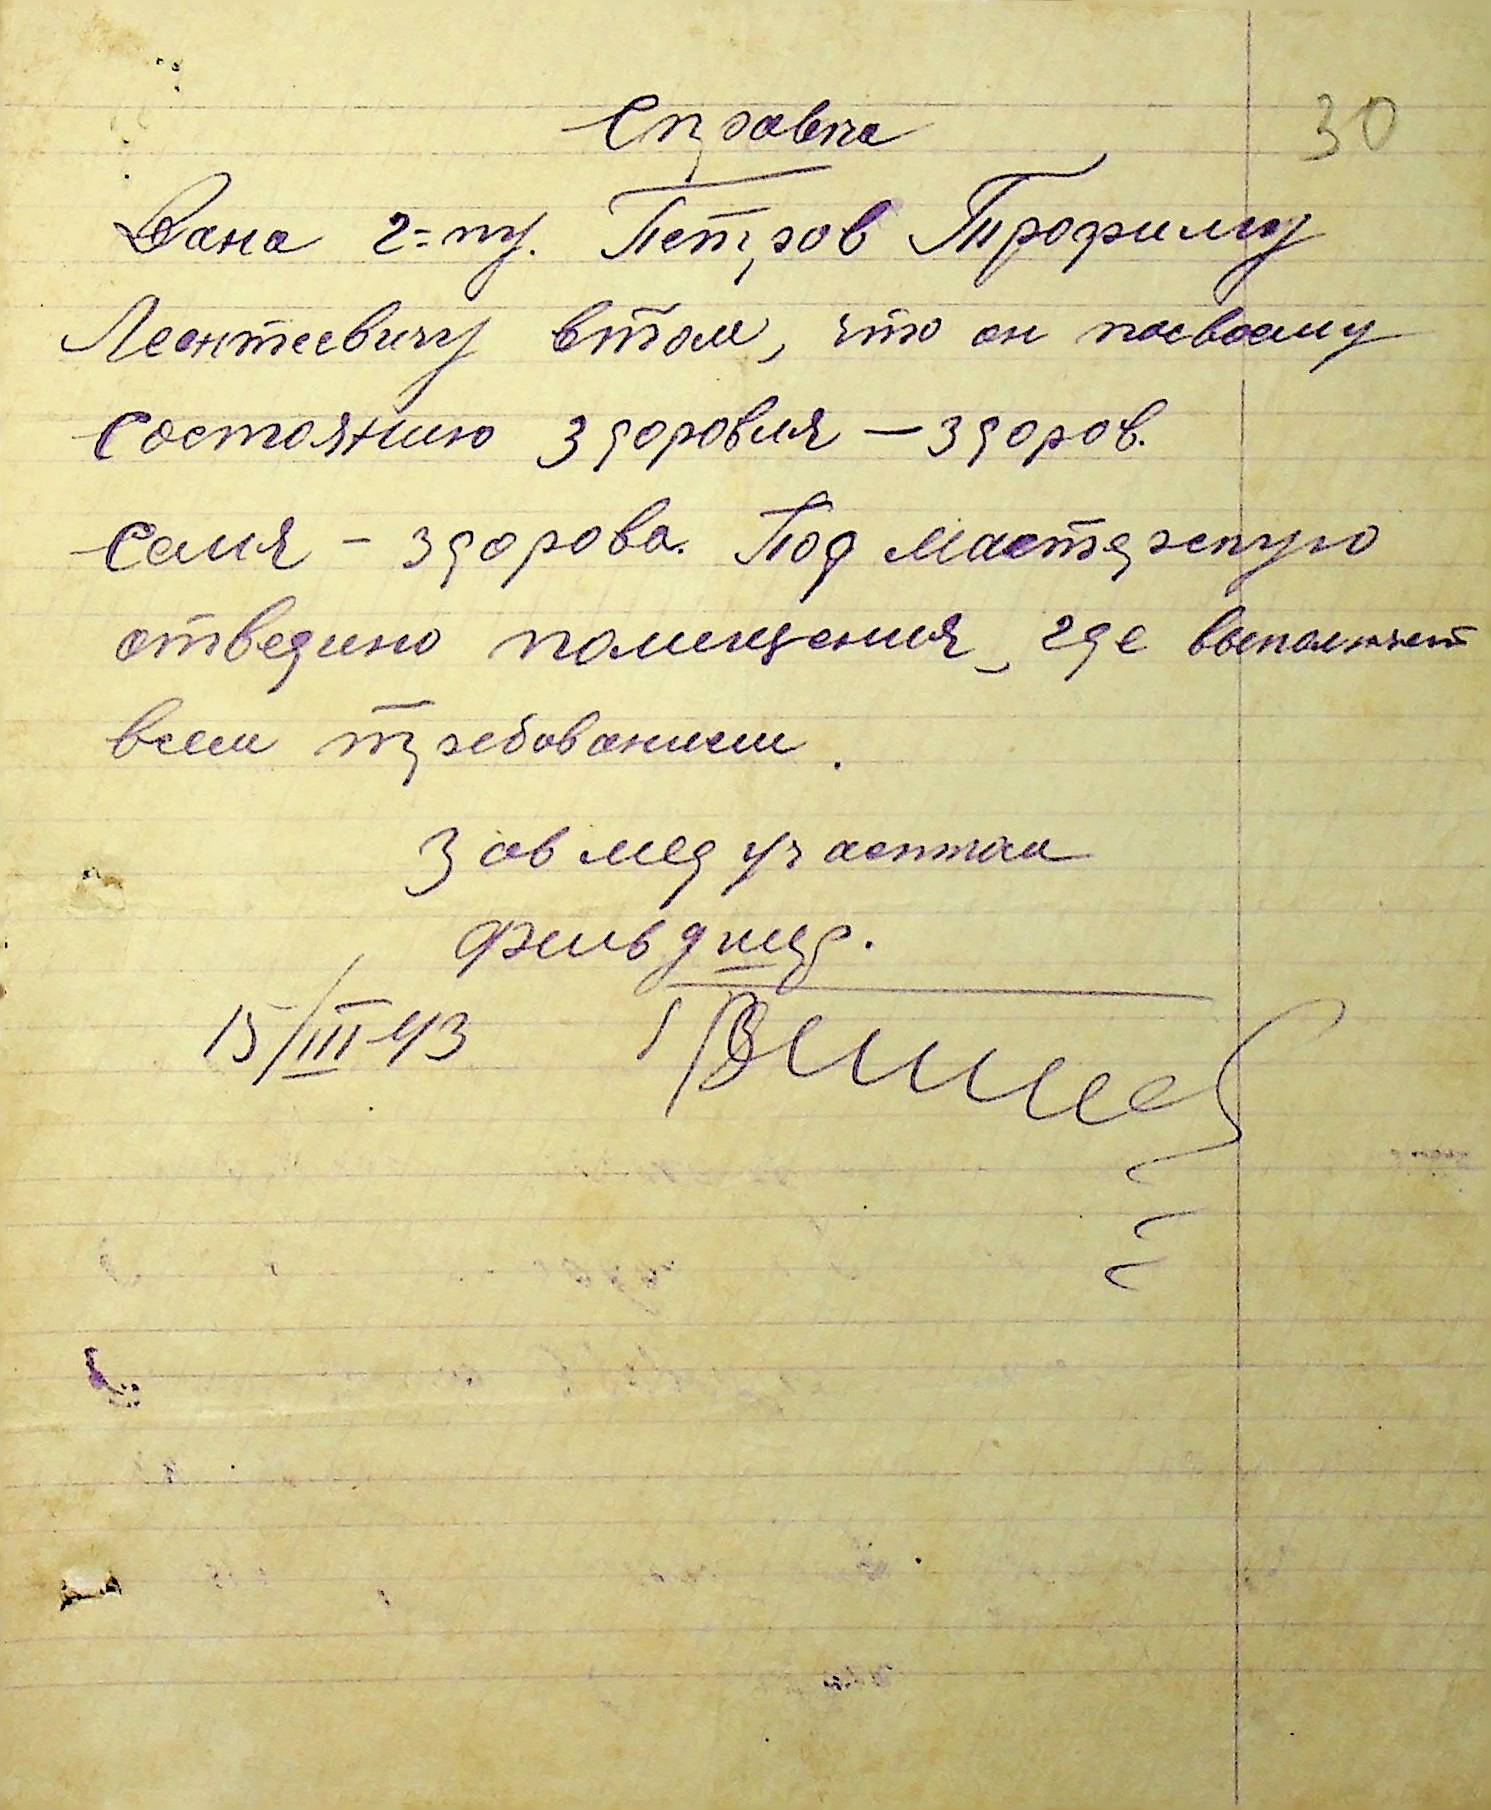 Справка
30
Дана г=ну. Петров Трофиму
Леонтеевичу втом, что он посвоему
состоянию здоровия — здоров.
Семя - здорова. Под мастерскую
отведино помещения, где выполняет
всем требованием.
Зав мед участком
фельдшер.
15/III-43